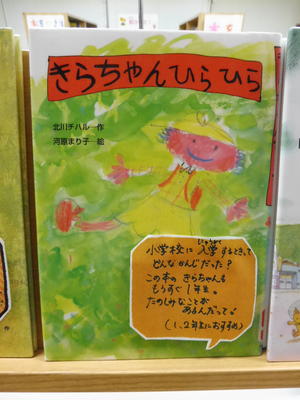 きらちゃんひらひら
北川チハル—作
河原まり子—絵
小学校に入学するときって
にゅうがく
どんなかんじだった？
この本の きらちゃんも
もうすぐ1年生。
たのしみなことが
あるんだって。
(1、2年生におすすめ)
作